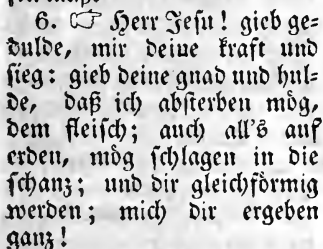 6. ☞ Herr Jesu! gieb ge-
dulde, mir deine kraft und
sieg: gieb deine gnad und hul-
de, daß ich absterben mög,
dem fleisch; auch all's auf
erden, mög schlagen in die
schanz; und dir gleichförmig
werden; mich dir ergeben
ganz!